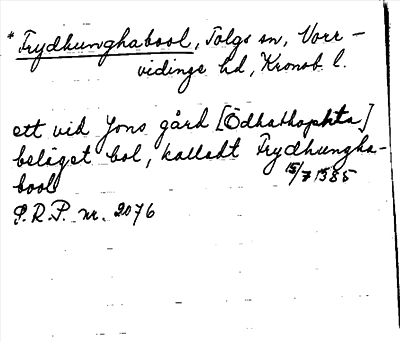 * Frydhunghabool, Tolgs sn, Norr-
vidinge hd, Kronob. l.
ett vid Jons gård [Ödhathophta]
beläget bol, kalladt Frydhungha-
bool 15/7 1385
S.R.P. nr. 2076